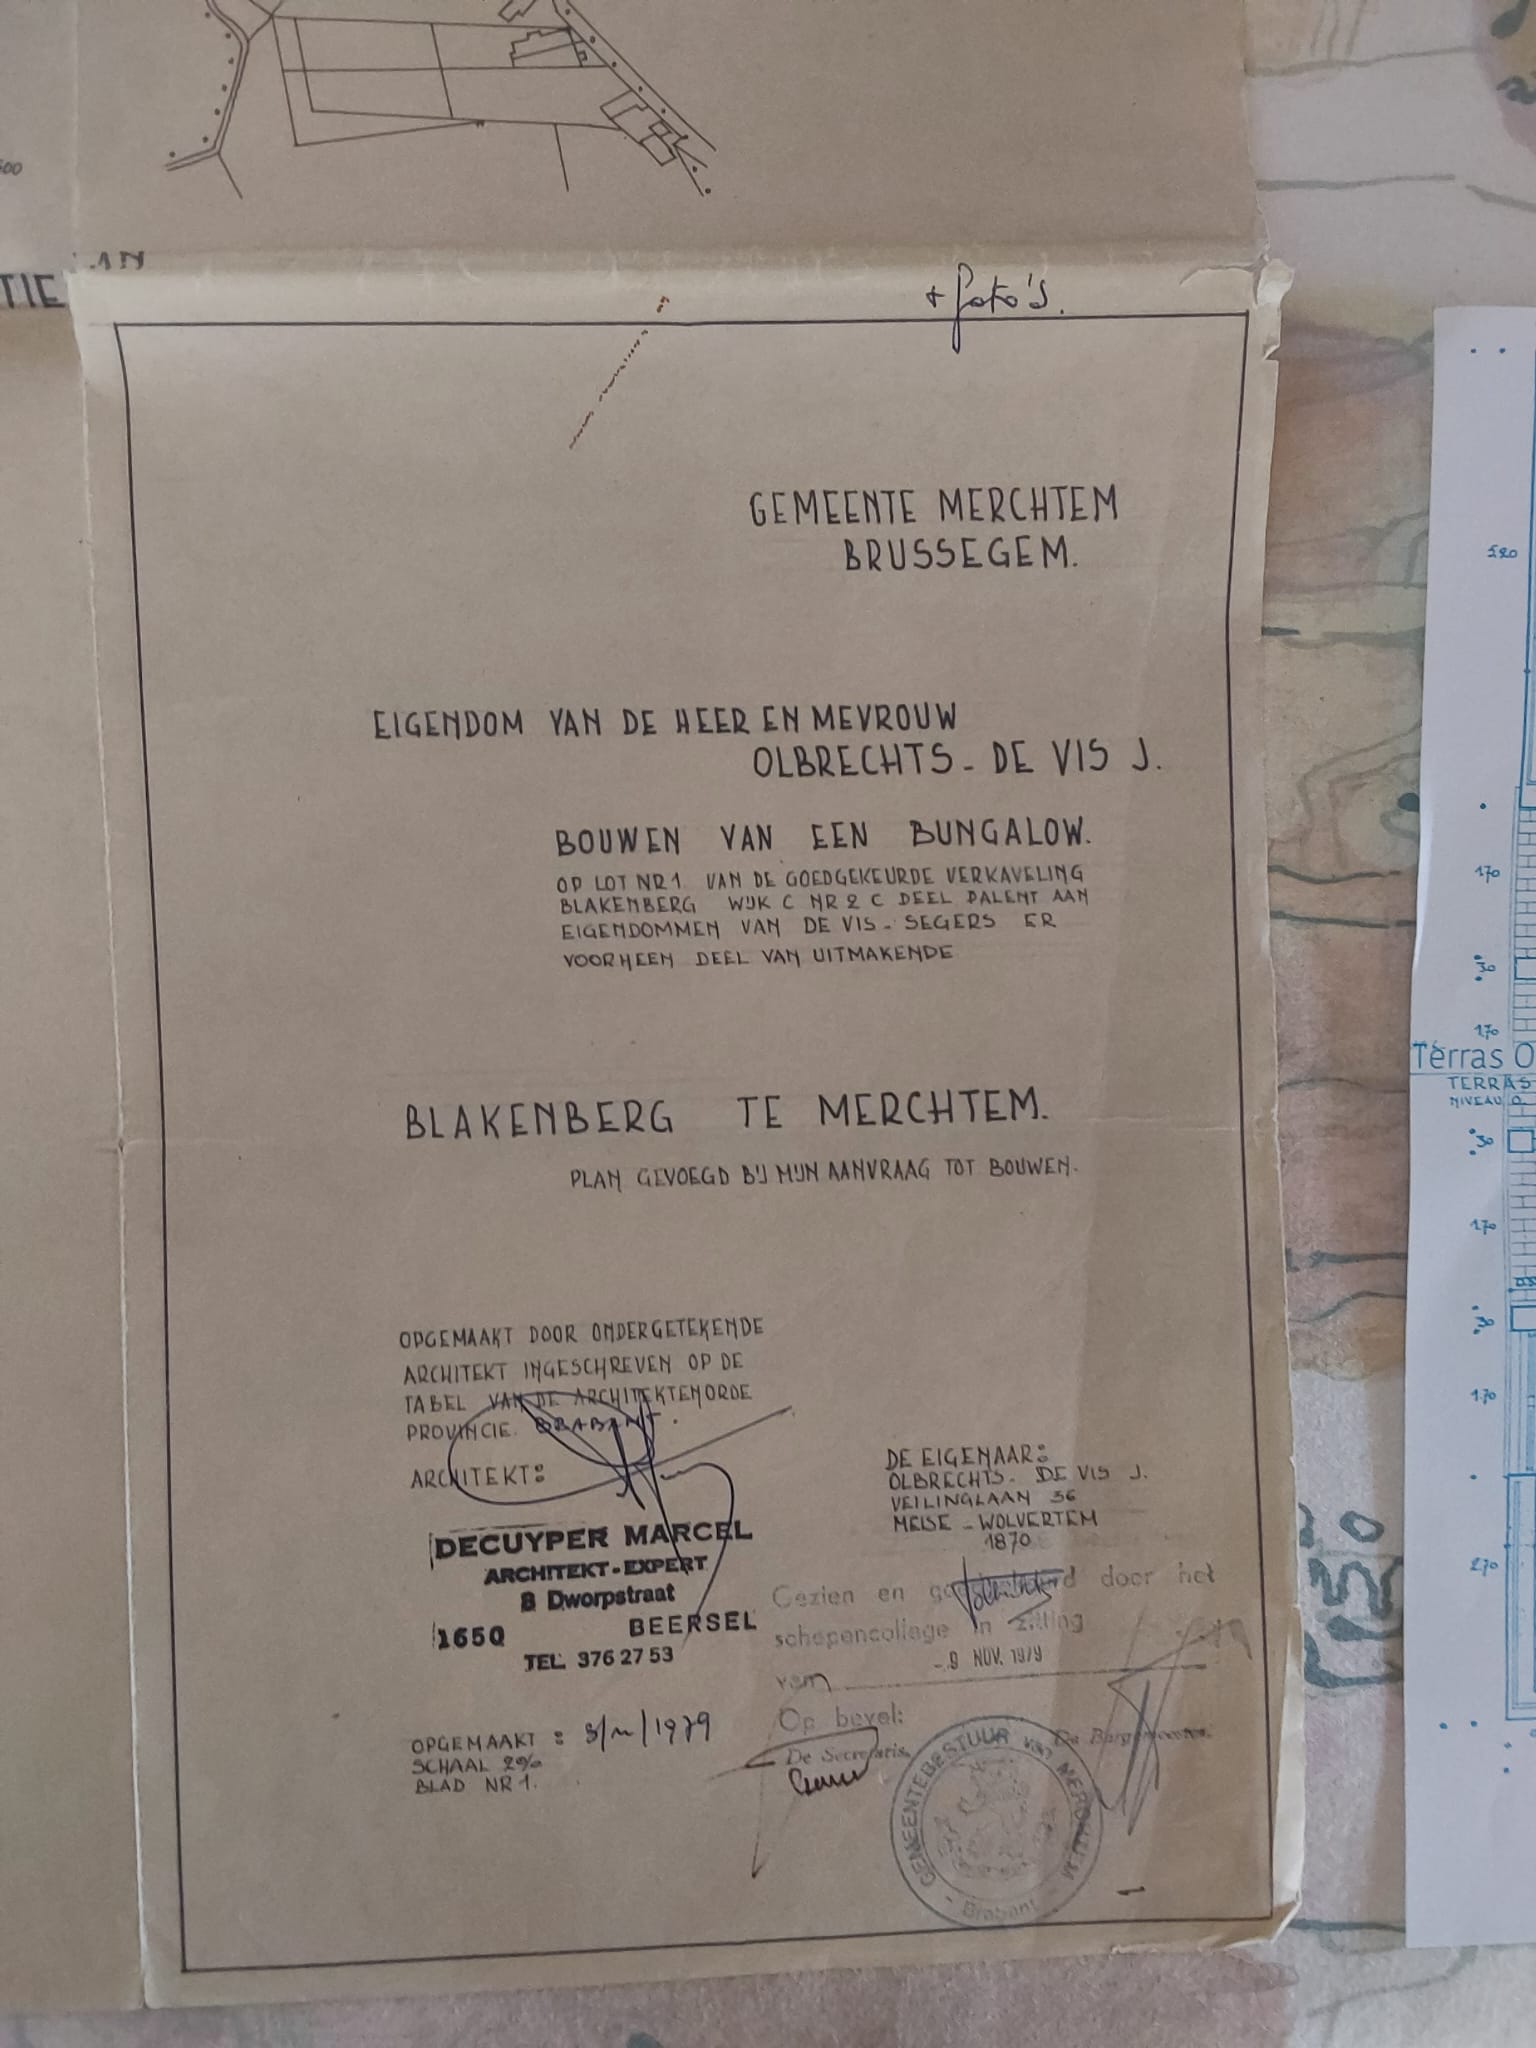 500
TIE
+ foto's.
GEMEENTE MERCHTEM
BRUSSEGEM.
EIGENDOM VAN DE HEER EN MEVROUW
OLBRECHTS - DE VIS J.
BOUWEN VAN EEN BUNGALOW.
OP LOT NR 1. VAN DE GOEDGEKEURDE VERKAVELING
BLAKENBERG WIJK C NR 2 C DEEL PALENT AAN
EIGENDOMMEN VAN DE VIS - SEGERS ER
VOORHEEN DEEL VAN UITMAKENDE
BLAKENBERG TE MERCHTEM.
PLAN GEVOEGD BIJ MIJN AANVRAAG TOT BOUWEN.
OPGEMAAKT DOOR ONDERGETEKENDE
ARCHITEKT INGESCHREVEN OP DE
TABEL VAN DE ARCHITEKTENORDE
PROVINCIE BRABANT.
ARCHITEKT:
DECUYPER MARCEL
ARCHITEKT-EXPERT
8 Dworpstraat
1650 BEERSEL
TEL. 376 27 53
OPGEMAAKT : 1979
SCHAAL 2%
BLAD NR 1.
DE EIGENAAR:
OLBRECHTS - DE VIS J.
VEILINGLAAN 36
MEISE - WOLVERTEM
1870
Gezien en door het
schepencollege in zitting
van - 9 NOV. 1979
Op bevel:
De Secretaris, De Burgemeester,
GEMEENTEBESTUUR van MERCHTEM
- Brabant -
1
520
170
30
170
Terras O
TERRAS
NIVEAU
30
170
30
170
270